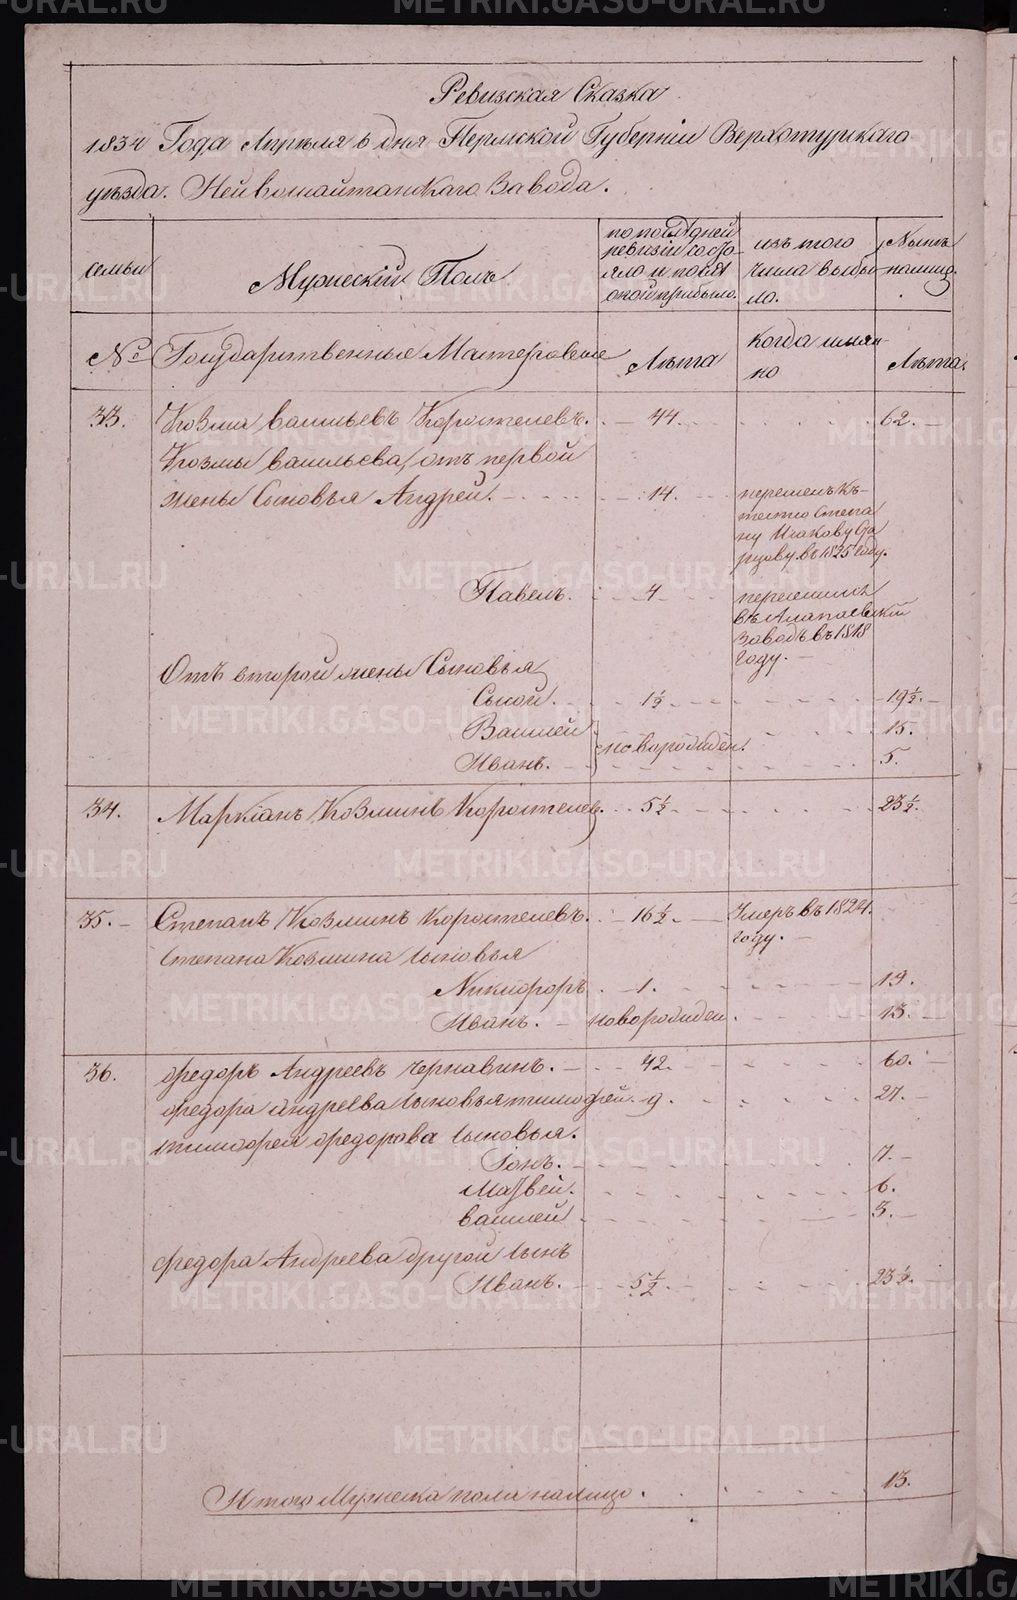 Ревизская Сказка
1834 Года Апреля 6 дня Пермской Губернии Верхотурскаго
уѣзда. Нейвошайтанскаго Завода.
семьи
Мужескій Полъ
по послѣдней ревизіи состояло и послѣ оной прибыло.
изъ того числа выбыло.
Нынѣ налицо.
№ Государственные Мастеровые
Лѣта
когда имянно
Лѣта.
33. Козма Васильевъ Коростелевъ. 44. 62.
Козмы Васильева, отъ первой
жены Сыновья Андрей. 14. перешелъ къ
тестю Степа
ну Исакову
рцову въ 1825 году.
Павелъ. 4 переселился
въ Алапаевский
Заводъ въ 1818
году.
Отъ второй жены Сыновья
Сысой. 1½ 19½.
Василей новорожден. 15.
Иванъ. 5.
34. Маркіанъ Козминъ Коростелев. 5½ 23½.
35. Степанъ Козминъ Коростелевъ. 16½. Умеръ въ 1824.
году.
Степана Козмина сыновья
Никифоръ 1. 19.
Иванъ. новорожден. 13.
36. Федоръ Андреевъ Чернавинъ. 42. 60.
Федора Андреева сыновья тимофей. 9. 27.
тимофея Федорова сыновья.
Іонъ. 7.
Матвей. 6.
Василей 3.
Федора Андреева другой сынъ
Иванъ. 5½ 23½.
Итого Мужеска пола налицо. 13.
METRIKI.GASO-URAL.RU